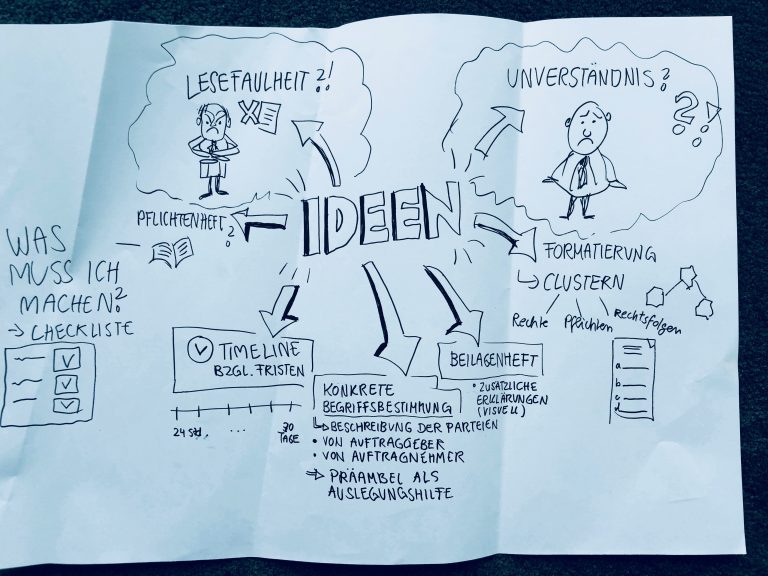 LESEFAULHEIT?!
UNVERSTÄNDNIS?
?!
IDEEN
PFLICHTENHEFT?
WAS
MUSS ICH
MACHEN?
→ CHECKLISTE
FORMATIERUNG
↳ CLUSTERN
Rechte Pflichten Rechtsfolgen
a
b
c
d
TIMELINE
BZGL. FRISTEN
24 Std. ... 30
TAGE
KONKRETE
BEGRIFFSBESTIMMUNG
↳ BESCHREIBUNG DER PARTEIEN
• VON AUFTRAGGEBER
• VON AUFTRAGNEHMER
⇒ PRÄAMBEL ALS
AUSLEGUNGSHILFE
BEILAGENHEFT
• ZUSÄTZLICHE
ERKLÄRUNGEN
(VISUELL)